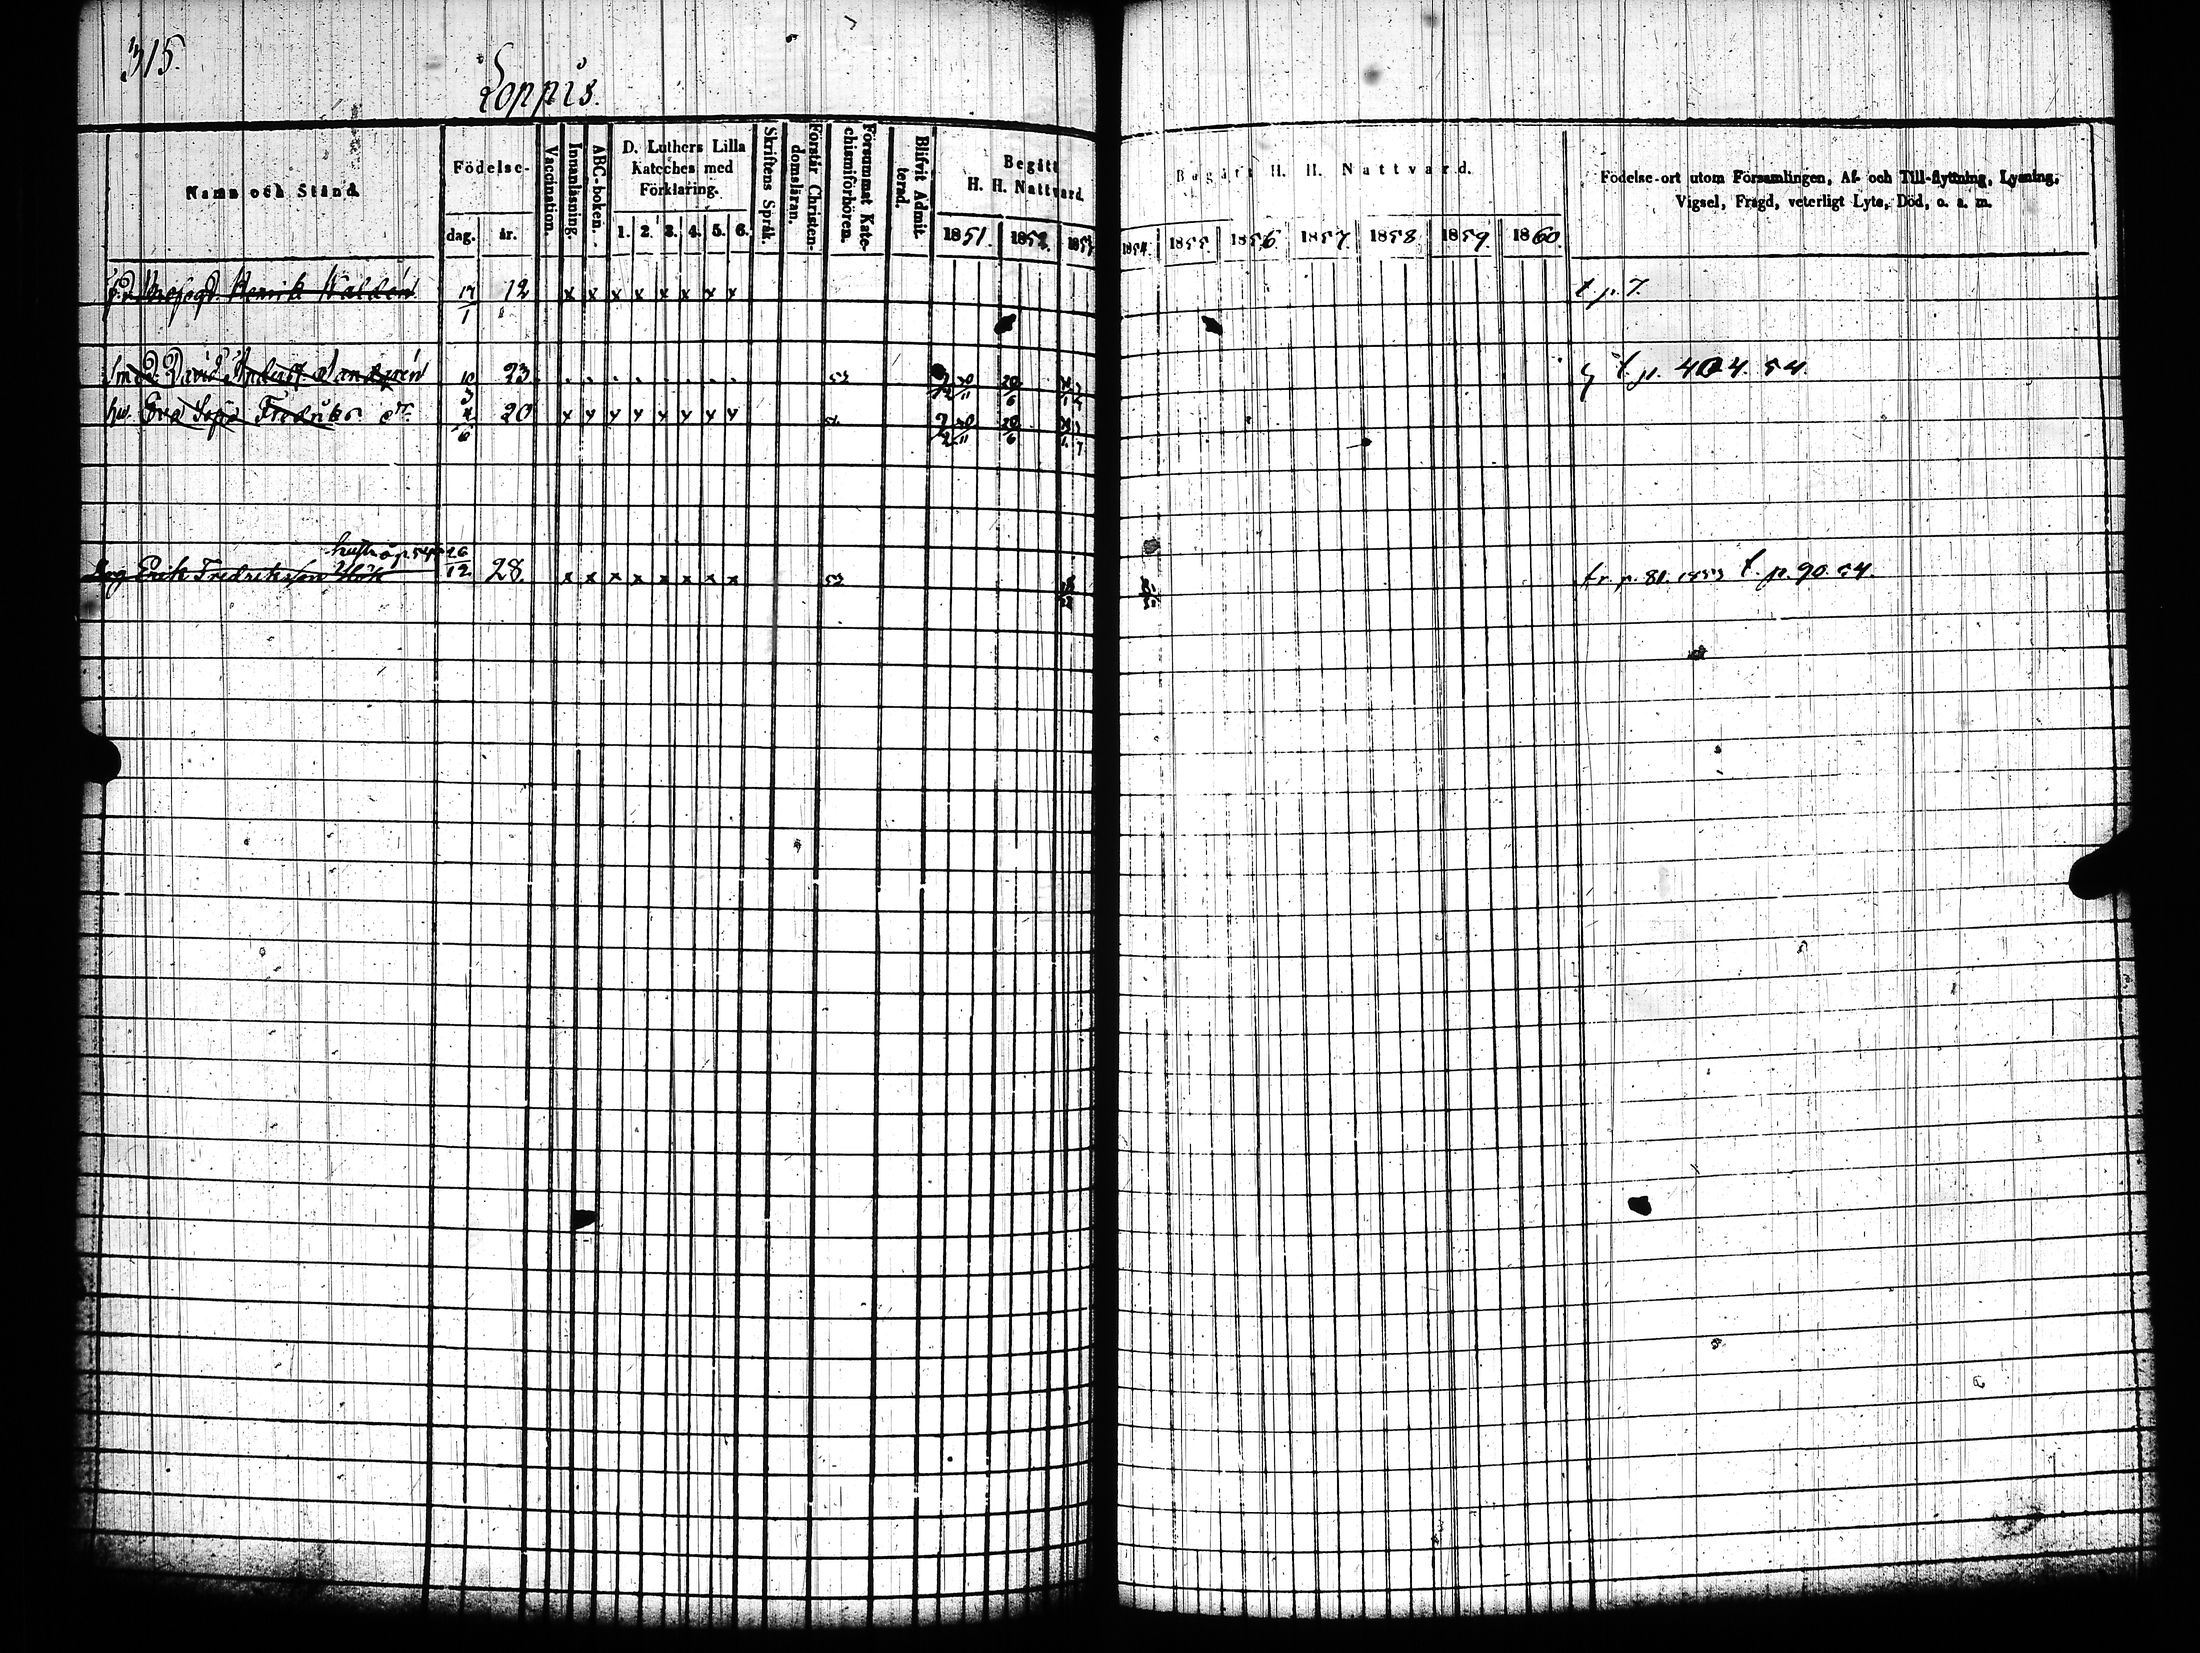 315.
Loppis.
Namn och Stånd.
Födelse-
dag. år.
Vaccination.
Innanläsning.
ABC-boken.
D. Luthers Lilla
Kateches med
Förklaring.
1. 2. 3. 4. 5. 6.
Skriftens Språk.
Förstår Christen-
domsläran.
Försummat Kate-
chismiförhören.
Blifvit Admit-
terad.
Begått
H. H. Nattvard.
1851. 1852. 1853
Begått H. H. Nattvard.
1854 1855. 1856 1857. 1858 1859. 1860.
Födelse-ort utom Församlingen, Af- och Till-flyttning, Lysning,
Vigsel, Frägd, veterligt Lyte, Död, o. s. m.
Henrik Waldén 17/1 12 x x x x x x x x t. p. 7.
David Sandgrén 10/3 23. 53 20/6 t. p. 404. 54.
hu. Eva Sofia Fredriks dr. 4/6 20 x x x x x x x x 20/6
Erik Fredriksson Höök 26/12 28. x x x x x x x x 53 fr. p. 81. 1853 t. p. 90 54.